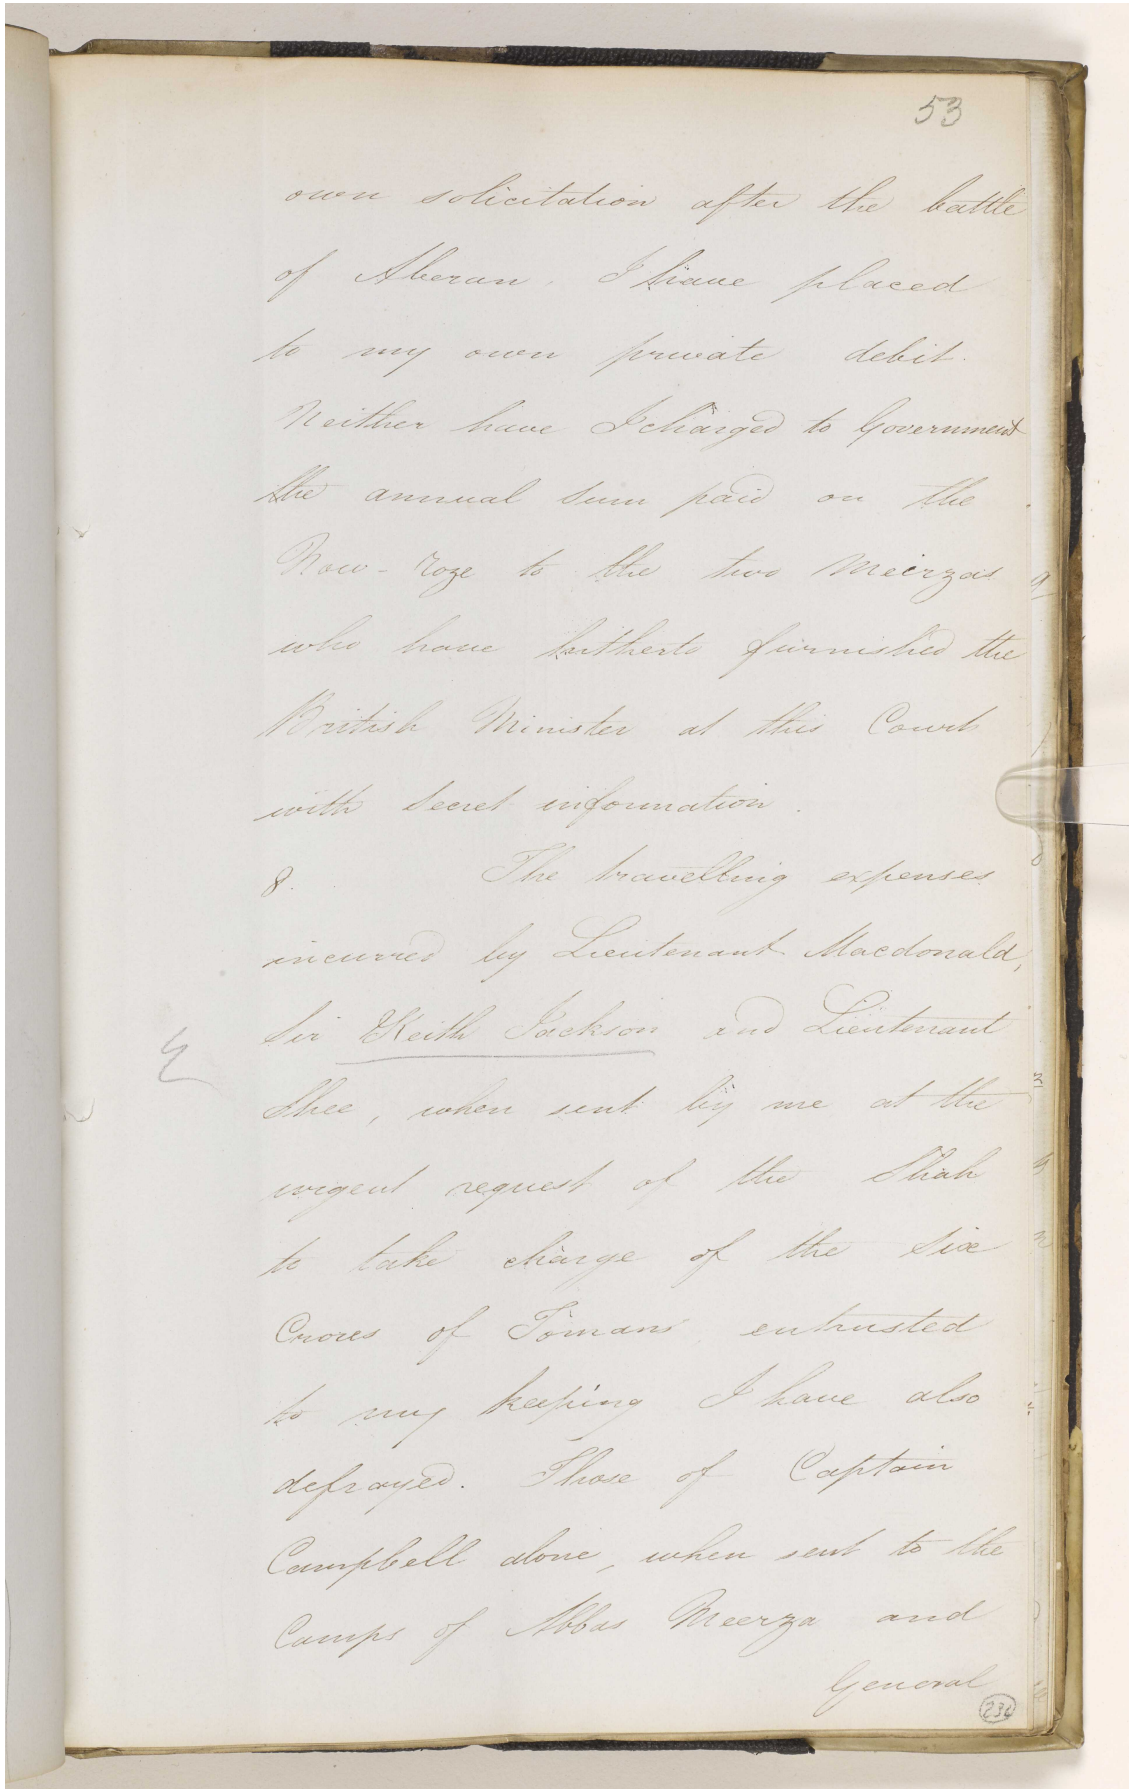 53
own solicitation after the battle
of Aberan, I have placed
to my own private debit.
Neither have I charged to Government
the annual sum paid on the
Now-roze to the two Meerzas
who have hitherto furnished the
British Minister at this Court
with secret information.
8. The travelling expenses
incurred by Lieutenant Macdonald,
Sir Keith Jackson and Lieutenant
Shee, when sent by me at the
urgent request of the Shah
to take charge of the Six
Crores of Tomans entrusted
to my keeping I have also
defrayed. Those of Captain
Campbell alone, when sent to the
Camps of Abbas Meerza and
General